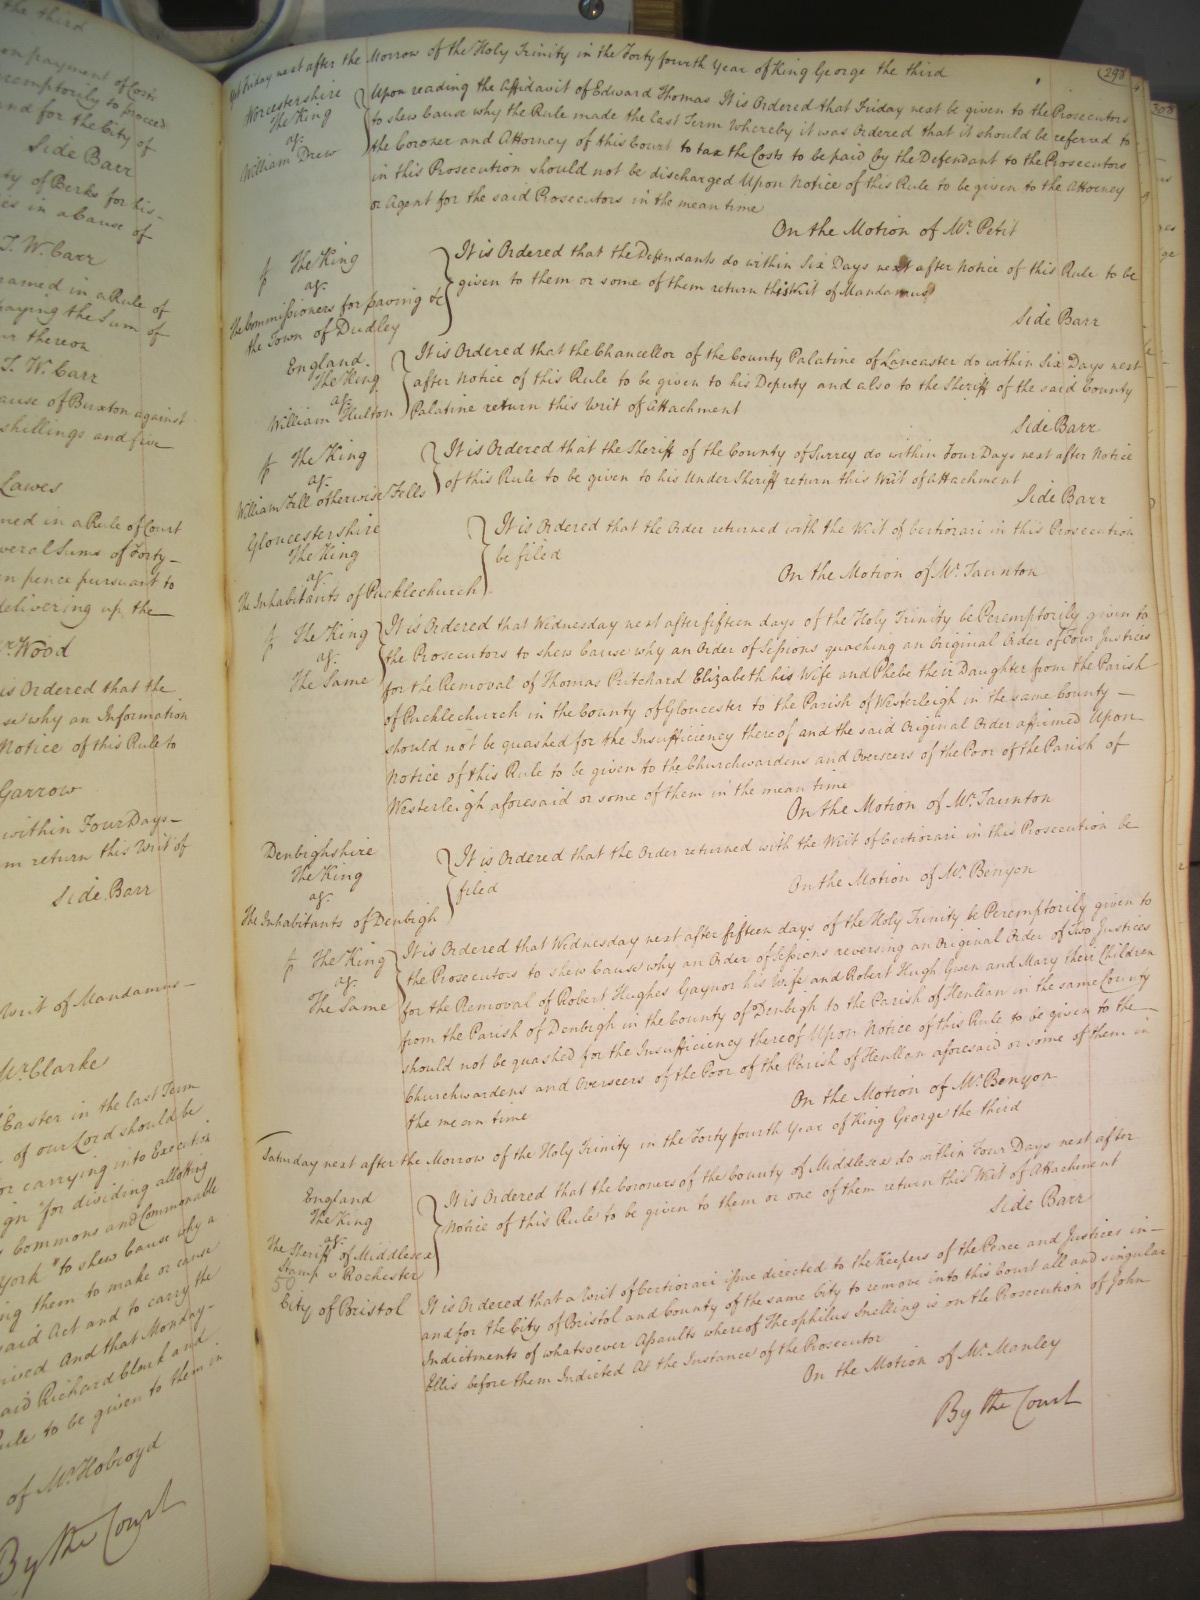 the third
on payment of Costs
peremptorily to proceed
and for the City of
Side Barr
ty of Berks for his
es in a Cause of
T. W. Carr
named in a Rule of
paying the Sum of
thereon
T. W. Carr
ause of Buxton against
shillings and five
Lawes
med in a Rule of Court
veral Sums of Forty
n pence pursuant to
delivering up the
Mr. Wood
is Ordered that the
se why an Information
Notice of this Rule to
Garrow
within Four Days
m return this Writ of
Side Barr
Writ of Mandamus
Mr. Clarke
Easter in the last Term
of our Lord should be
or carrying into Execution
ign "for dividing allotting
Commons and Commonable
York" to shew Cause why a
ing them to make or cause
said Act and to carry the
And that Monday
aid Richard Clark and
ule to be given to them in
of Mr. Holroyd
By the Court
298
308
Yet Friday next after the Morrow of the Holy Trinity in the Forty fourth Year of King George the third
Worcestershire
The King
agt.
William Drew
Upon reading the Affidavit of Edward Thomas It is Ordered that Friday next be given to the Prosecutors
to shew Cause why the Rule made the last Term Whereby it was Ordered that it should be referred to
the Coroner and Attorney of this Court to tax the Costs to be paid by the Defendant to the Prosecutors
in this Prosecution should not be discharged Upon Notice of this Rule to be given to the Attorney
or Agent for the said Prosecutors in the mean time
On the Motion of Mr. Petit
The King
agt.
The Commissioners for paving &c
the Town of Dudley
It is Ordered that the Defendants do within Six Days next after Notice of this Rule to be
given to them or some of them return this Writ of Mandamus
Side Barr
England.
The King
agt.
William Hulton
It is Ordered that the Chancellor of the County Palatine of Lancaster do within Six Days next
after Notice of this Rule to be given to his Deputy and also to the Sheriff of the said County
Palatine return this Writ of Attachment
Side Barr
The King
agt.
William Fell otherwise Fells
It is Ordered that the Sheriff of the County of Surrey do within Four Days next after Notice
of this Rule to be given to his Under Sheriff return this Writ of Attachment
Side Barr
Gloucestershire
The King
agt.
The Inhabitants of Pucklechurch
It is Ordered that the Order returned with the Writ of Certiorari in this Prosecution
be filed
On the Motion of Mr. Taunton
The King
agt.
The Same
It is Ordered that Wednesday next after fifteen days of the Holy Trinity be Peremptorily given to
the Prosecutors to shew Cause why an Order of Sessions quashing an Original Order of Four Justices
for the Removal of Thomas Pritchard Elizabeth his Wife and Phebe their Daughter from the Parish
of Pucklechurch in the County of Gloucester to the Parish of Westerleigh in the same County
should not be quashed for the Insufficiency thereof and the said Original Order affirmed Upon
Notice of this Rule to be given to the Churchwardens and Overseers of the Poor of the Parish of
Westerleigh aforesaid or some of them in the mean time
On the Motion of Mr. Taunton
Denbighshire
The King
agt.
The Inhabitants of Denbigh
It is Ordered that the Order returned with the Writ of Certiorari in this Prosecution be
filed
On the Motion of Mr. Benyon
The King
agt.
The Same
It is Ordered that Wednesday next after fifteen days of the Holy Trinity be Peremptorily given to
the Prosecutors to shew Cause why an Order of Sessions reversing an Original Order of Two Justices
for the Removal of Robert Hughes Gaynor his Wife and Robert Hugh Gwen and Mary their Children
from the Parish of Denbigh in the County of Denbigh to the Parish of Henllan in the same County
should not be quashed for the Insufficiency thereof Upon Notice of this Rule to be given to the
Churchwardens and Overseers of the Poor of the Parish of Henllan aforesaid or some of them in
the mean time
On the Motion of Mr. Benyon
Saturday next after the Morrow of the Holy Trinity in the Forty fourth Year of King George the third
England
The King
agt.
The Sheriff of Middlesex
Stamp v Rochester
It is Ordered that the Coroners of the County of Middlesex do within Four Days next after
Notice of this Rule to be given to them or one of them return this Writ of Attachment
Side Barr
City of Bristol
It is Ordered that a Writ of Certiorari issue directed to the Keepers of the Peace and Justices in
and for the City of Bristol and County of the same City to remove into this Court all and singular
Indictments of whatsoever Assaults whereof Theophilus Snelling is on the Prosecution of John
Ellis before them Indicted At the Instance of the Prosecutor
On the Motion of Mr. Manley
By the Court